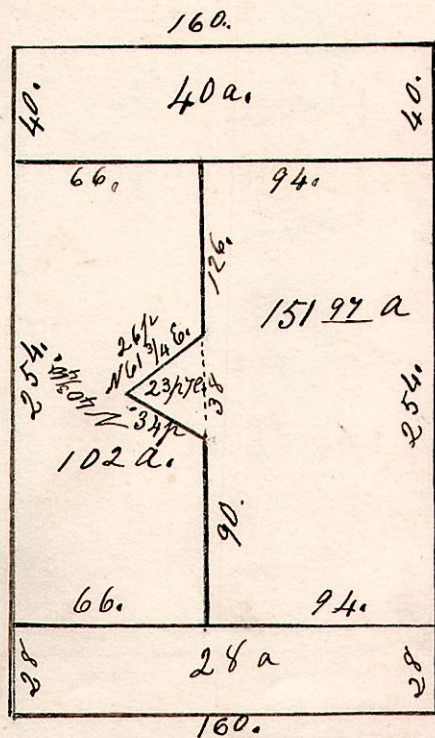 160.
40. 40a. 40.
66. 94.
126.
151 97 a
26p
N61 3/4 E.
23p
38
254. 254.
N 40 3/4
34p
102 a.
90.
66. 94.
28 28 a 28
160.